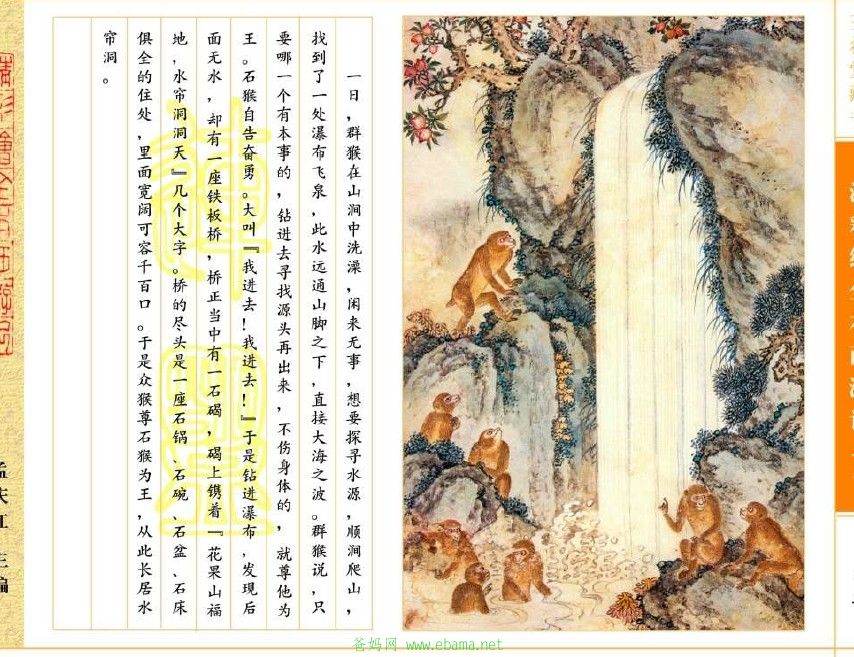 一日，群猴在山涧中洗澡，闲来无事，想要探寻水源，顺涧爬山，
找到了一处瀑布飞泉，此水远通山脚之下，直接大海之波。群猴说，只
要哪一个有本事的，钻进去寻找源头再出来，不伤身体的，就尊他为
王。石猴自告奋勇。大叫『我进去！我进去！』于是钻进瀑布，发现后
面无水，却有一座铁板桥，桥正当中有一石碣，碣上镌着『花果山福
地，水帘洞洞天』几个大字。桥的尽头是一座石锅、石碗、石盆、石床
俱全的住处，里面宽阔可容千百口。于是众猴尊石猴为王，从此长居水
帘洞。
孟庆江 主编
爸妈网 www.ebama.net